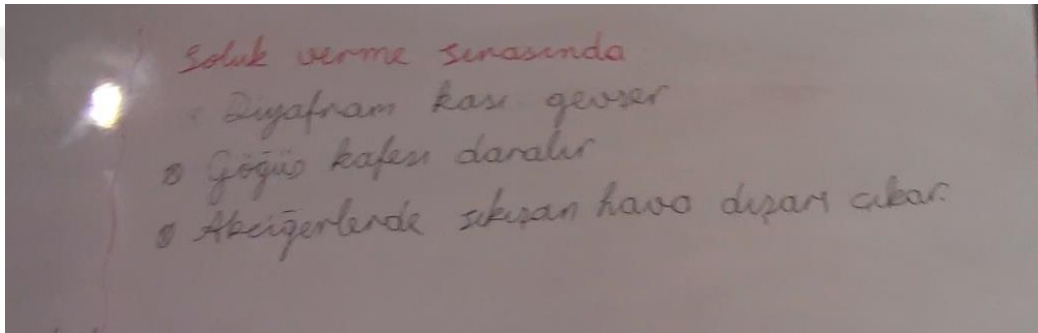 Soluk verme sırasında
Diyafram kası gevşer
Göğüs kafesi daralır
Akciğerlerde sıkışan hava dışarı çıkar.